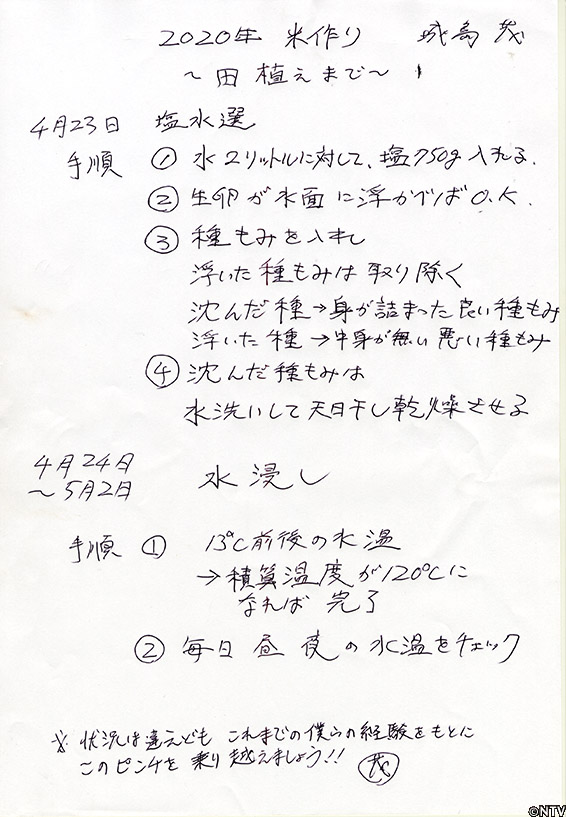 2020年 米作り 城島茂
〜田植えまで〜 1
4月23日 塩水選
手順 ① 水2リットルに対して、塩750g入れる.
② 生卵が水面に浮かべばO.K.
③ 種もみを入れ
浮いた種もみは取り除く
沈んだ種→身が詰まった良い種もみ
浮いた種→中身が無い悪い種もみ
④ 沈んだ種もみは
水洗いして天日干し乾燥させる
4月24日
〜5月2日 水浸し
手順 ① 13℃前後の水温
→積算温度が120℃に
なれば 完了
② 毎日昼夜の水温をチェック
※ 状況は違えども これまでの僕らの経験をもとに
このピンチを乗り越えましょう!! 茂
©NTV